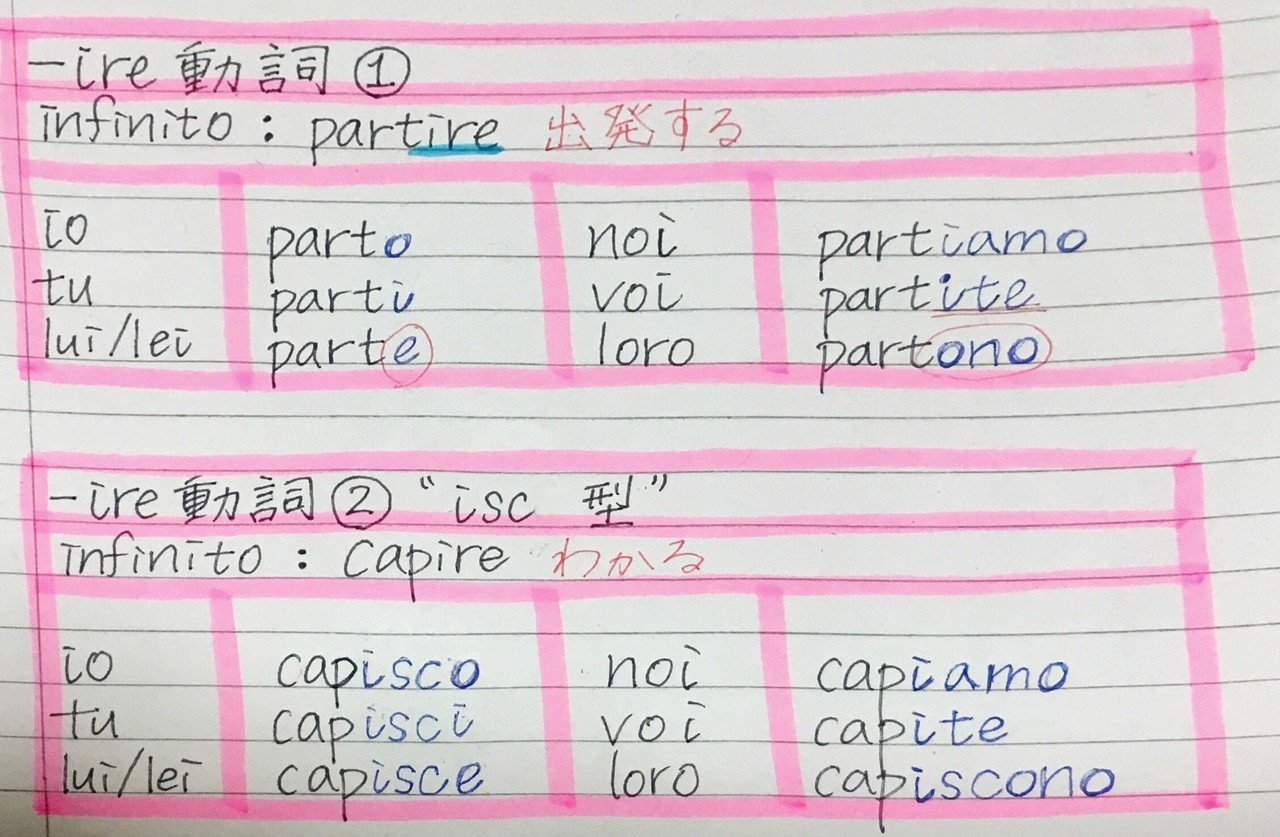 -ire 動詞 ①
infinito : partire 出発する
io parto noi partiamo
tu parti voi partite
lui/lei parte loro partono
-ire 動詞 ② “isc 型”
infinito : capire わかる
io capisco noi capiamo
tu capisci voi capite
lui/lei capisce loro capiscono